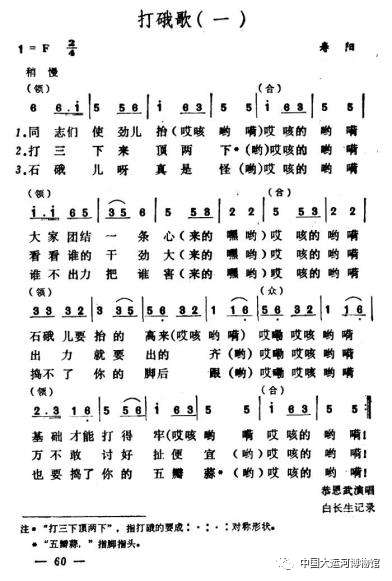 打硪歌(一)
1=F 2/4 寿阳
稍慢
(领) (合)
6 6.i 5 56 i 63 5 5 i 63 5 5
1.同志们使劲儿抬(哎咳哟嗬)哎咳的哟嗬
2.打三下来顶两下*(哟)哎咳的哟嗬
3.石硪儿呀真是怪(哟嗬)哎咳的哟嗬
(领) (合)
i.i 65 35 5 5 53 22 5 53 22
大家团结一条心(来的嘿哟)哎咳的哟嗬
看看谁的干劲大(来的嘿哟)哎咳的哟嗬
谁不出力把谁害(来的嘿哟)哎咳的哟嗬
(领) (众)
33 32 3 35 56 52 1 16 56 52 1 16
石硪儿要抬的高来(哎咳哟嗬)哎嘞哎咳哟嗬
出力就要出的齐(哟)哎嘞哎咳哟嗬
捣不了你的脚后跟(哟)哎嘞哎咳哟嗬
(领) (合)
2.3 16 5 56 i 63 5 5 i 63 5 5
基础才能打得牢(哎咳哟嗬哎咳的哟嗬!
万不敢讨好扯便宜(哟)哎咳的哟嗬!
也要捣了你的五瓣蒜*(哟)哎咳的哟嗬!
恭恩武演唱
白长生记录
注*“打三下顶两下”，指打硪的要成：·：·：对称形状。
*“五瓣蒜，”指脚指头。
— 60 —
中国大运河博物馆